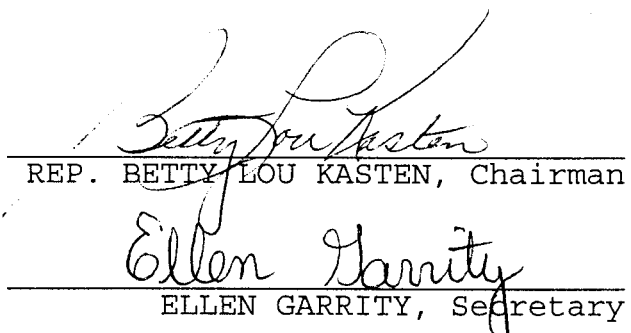 Betty Lou Kasten
REP. BETTY LOU KASTEN, Chairman
Ellen Garrity
ELLEN GARRITY, Secretary